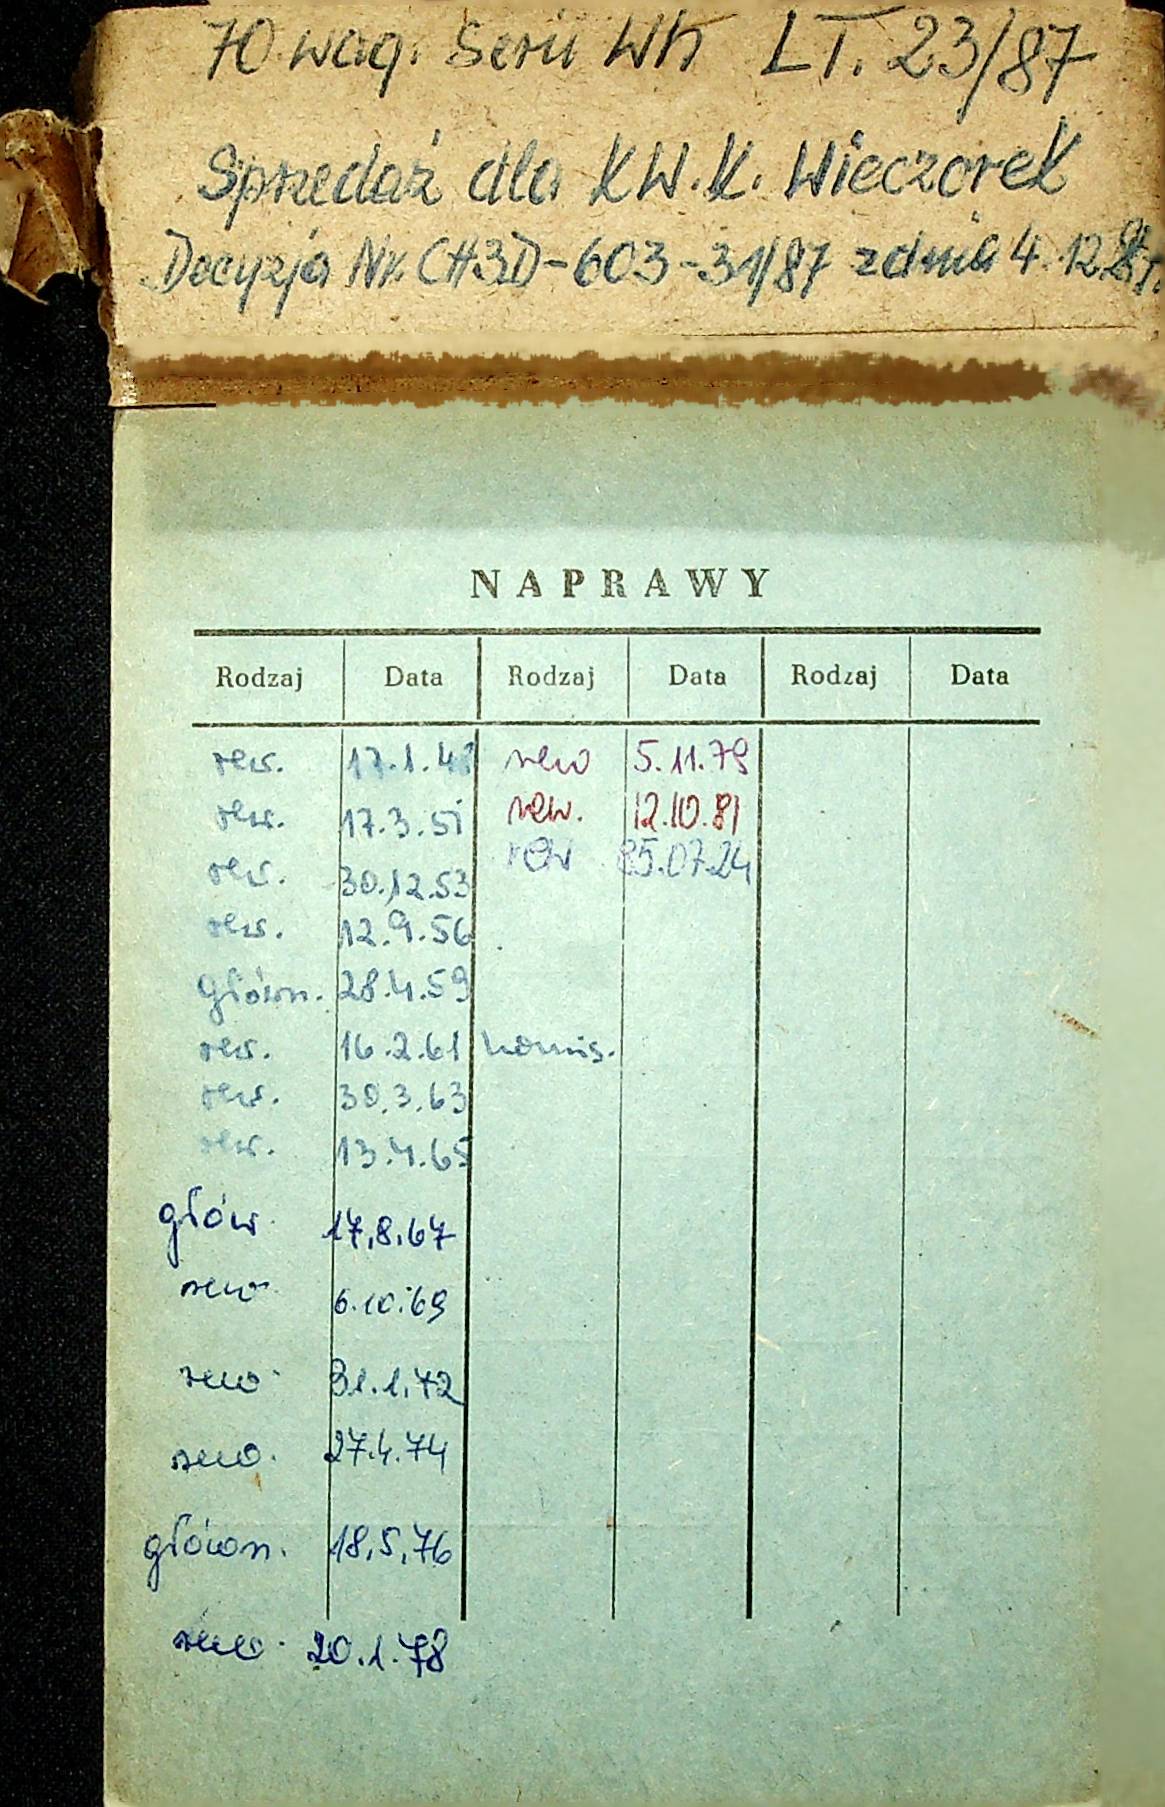 70 wag. Serii Wh LT. 23/87
Sprzedaż dla KW.K. Wieczorek
Decyzja Nr. CH3D-603-31/87 z dnia 4.12.87r.
NAPRAWY
Rodzaj Data Rodzaj Data Rodzaj Data
rew. 17.1.48 rew 5.11.79
rew. 17.3.51 rew. 12.10.81
rew. 30.12.53 rew 85.07.24
rew. 12.9.56
główn. 28.4.59
rew. 16.2.61 komis.
rew. 30.3.63
rew. 13.4.65
głów. 17.8.67
rew 6.10.69
rew. 31.1.72
rew. 27.4.74
główn. 18.5.76
rew. 20.1.78